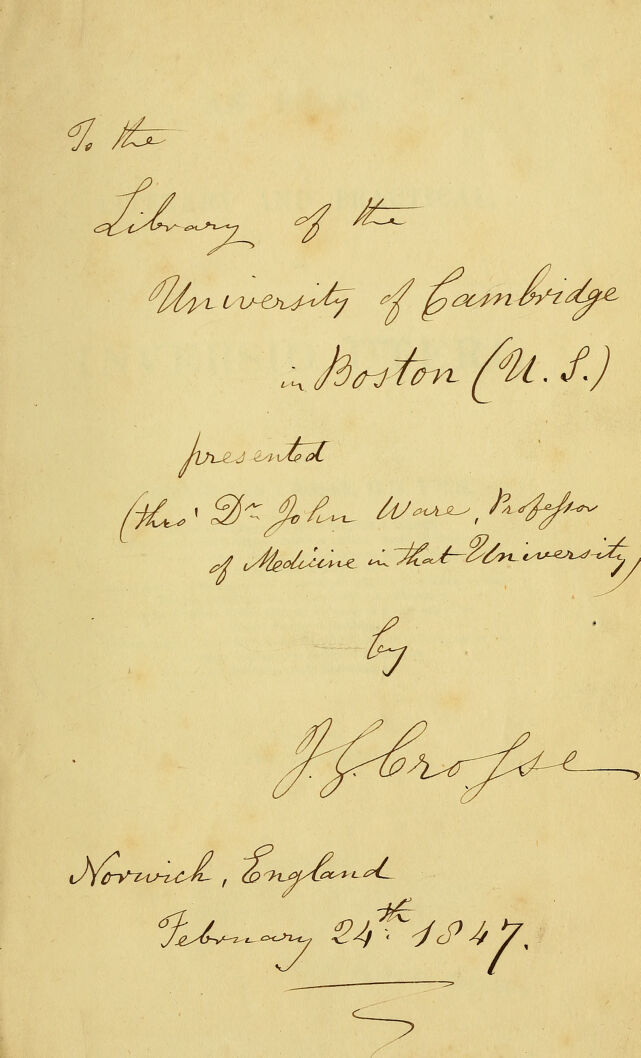 To the
Library of the
University of Cambridge
in Boston (U. S.)
presented
(thro' Dr John Ware, Professor
of Medicine in that University)
by
J. G. Crosse
Norwich, England
February 24th 1847.